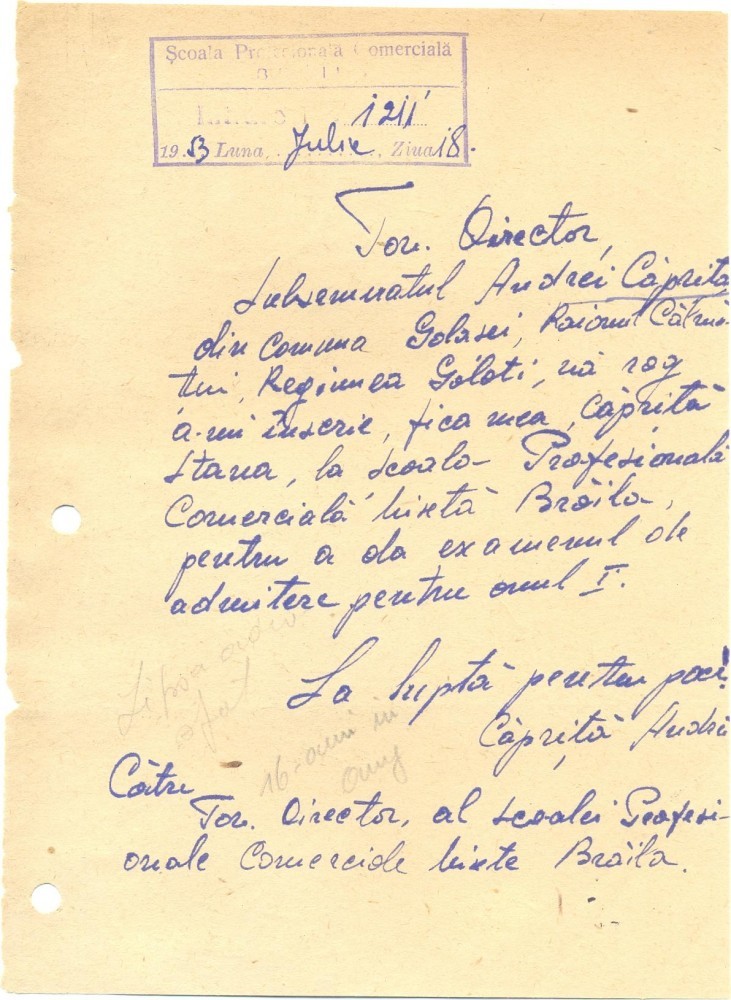 Școala Profesională Comercială
1211
19 53 Luna Julie Ziua 18.
Tov. Director,
Subsemnatul Andrei Căpriță
din Comuna Golașei, Raionul Călmă-
tui, Regiunea Galati, vă rog
a-mi înscrie, fica mea, Căpriță
Stana, la scoala Profesională
Comercială Mixtă Brăila,
pentru a da examenul de
admitere pentru anul I.
La luptă pentru pace!
Căpriță Andrei
16 ani in
Către
Tov. Director, al scoalei Profesi-
onale Comerciale Mixte Brăila.